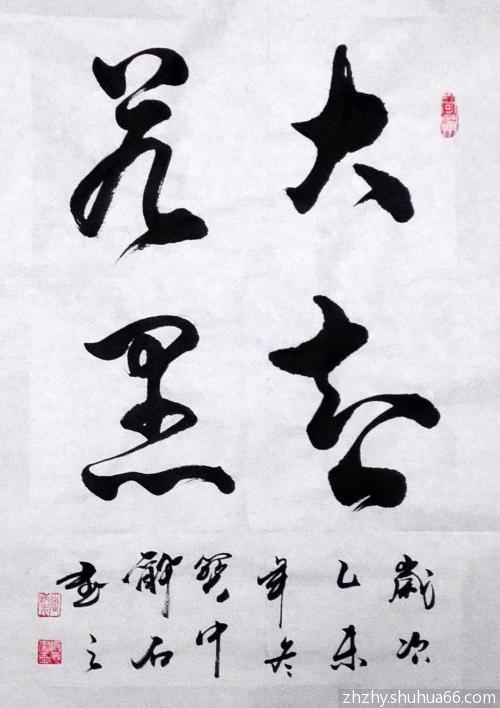 大智
若愚
歲次
乙未
年冬
中
解石
書之
zhzhy.shuhua66.com